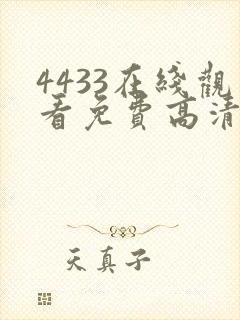 4433在綫觀
看免費高清
天真子